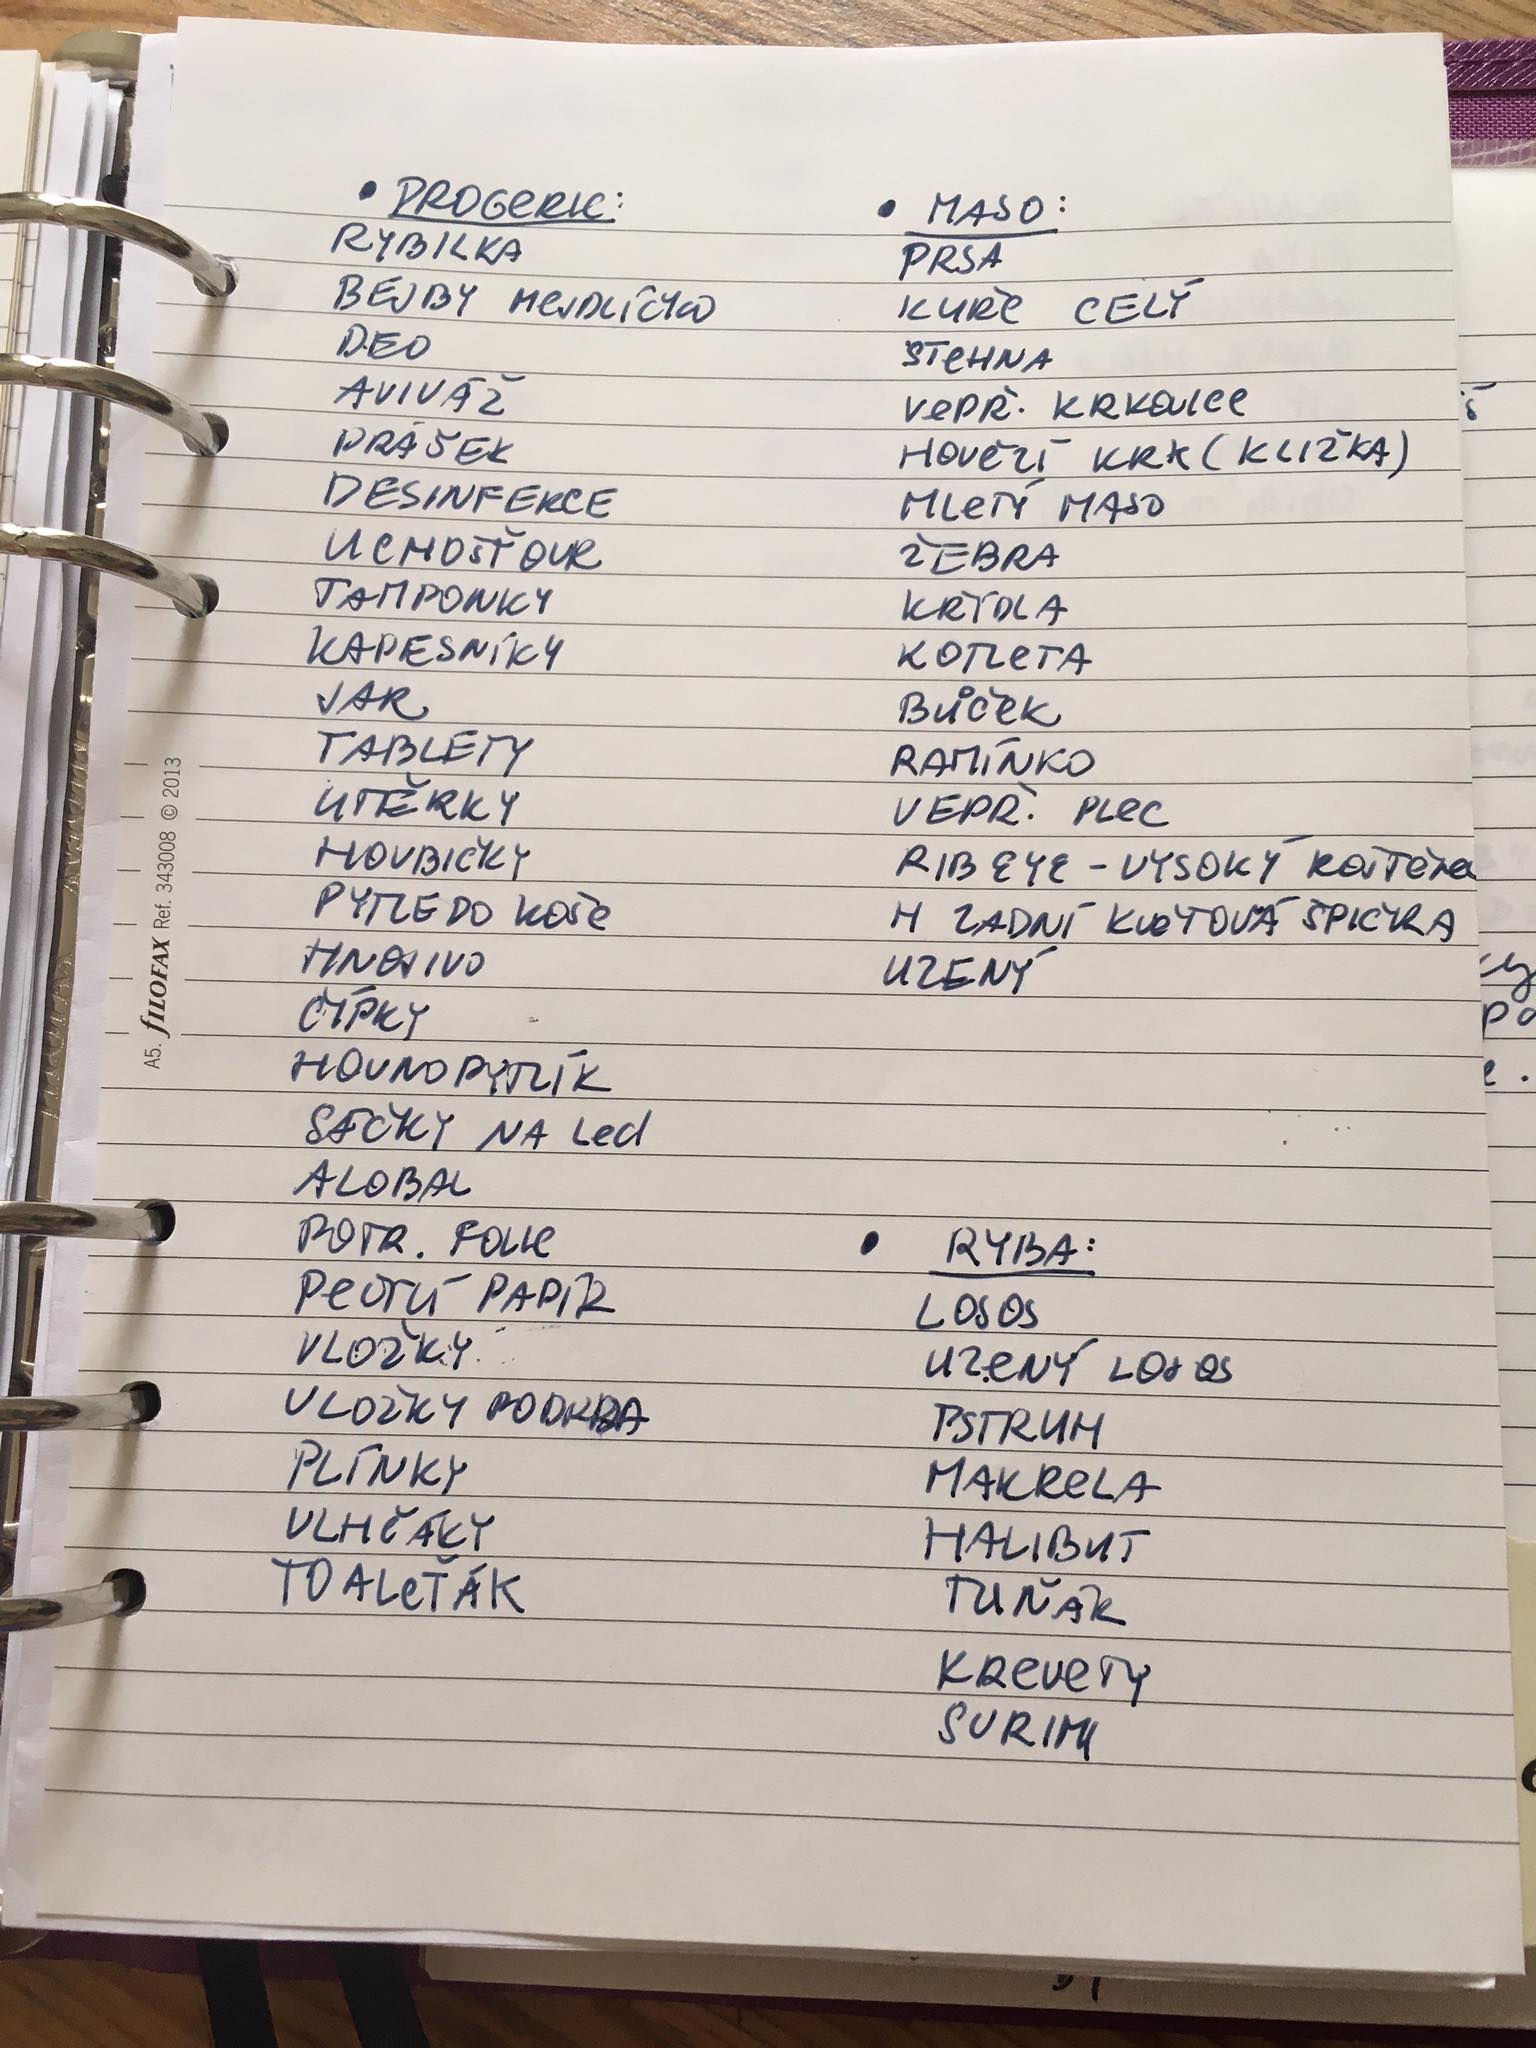 • DROGERIE:
RYBILKA
BEJBY MEJDLÍČKO
DEO
AVIVÁŽ
PRÁŠEK
DESINFEKCE
UCHOŠŤOUR
TAMPONKY
KAPESNÍKY
JAR
TABLETY
UTĚRKY
HOUBIČKY
PYTLE DO KOŠE
HNOJIVO
ČÍPKY
HOVNOPYTLÍK
SÁČKY NA LED
ALOBAL
POTR. FOLIE
PEČÍCÍ PAPÍR
VLOŽKY
VLOŽKY PODKBA
PLÍNKY
VLHČÁKY
TOALEŤÁK
• MASO:
PRSA
KUŘE CELÝ
STEHNA
VEPŘ. KRKOVICE
HOVĚZÍ KRK (KLIŽKA)
MLETÝ MASO
ŽEBRA
KŘÝDLA
KOTLETA
BŮČEK
RAMÍNKO
VEPŘ. PLEC
RIB EYE - VYSOKÝ ROŠTĚNEC
H ZADNÍ KVĚTOVÁ ŠPIČKA
UZENÝ
• RYBA:
LOSOS
UZENÝ LOSOS
PSTRUH
MAKRELA
HALIBUT
TUŇÁK
KREVETY
SURIMI
A5. FILOFAX Ref. 343008 © 2013